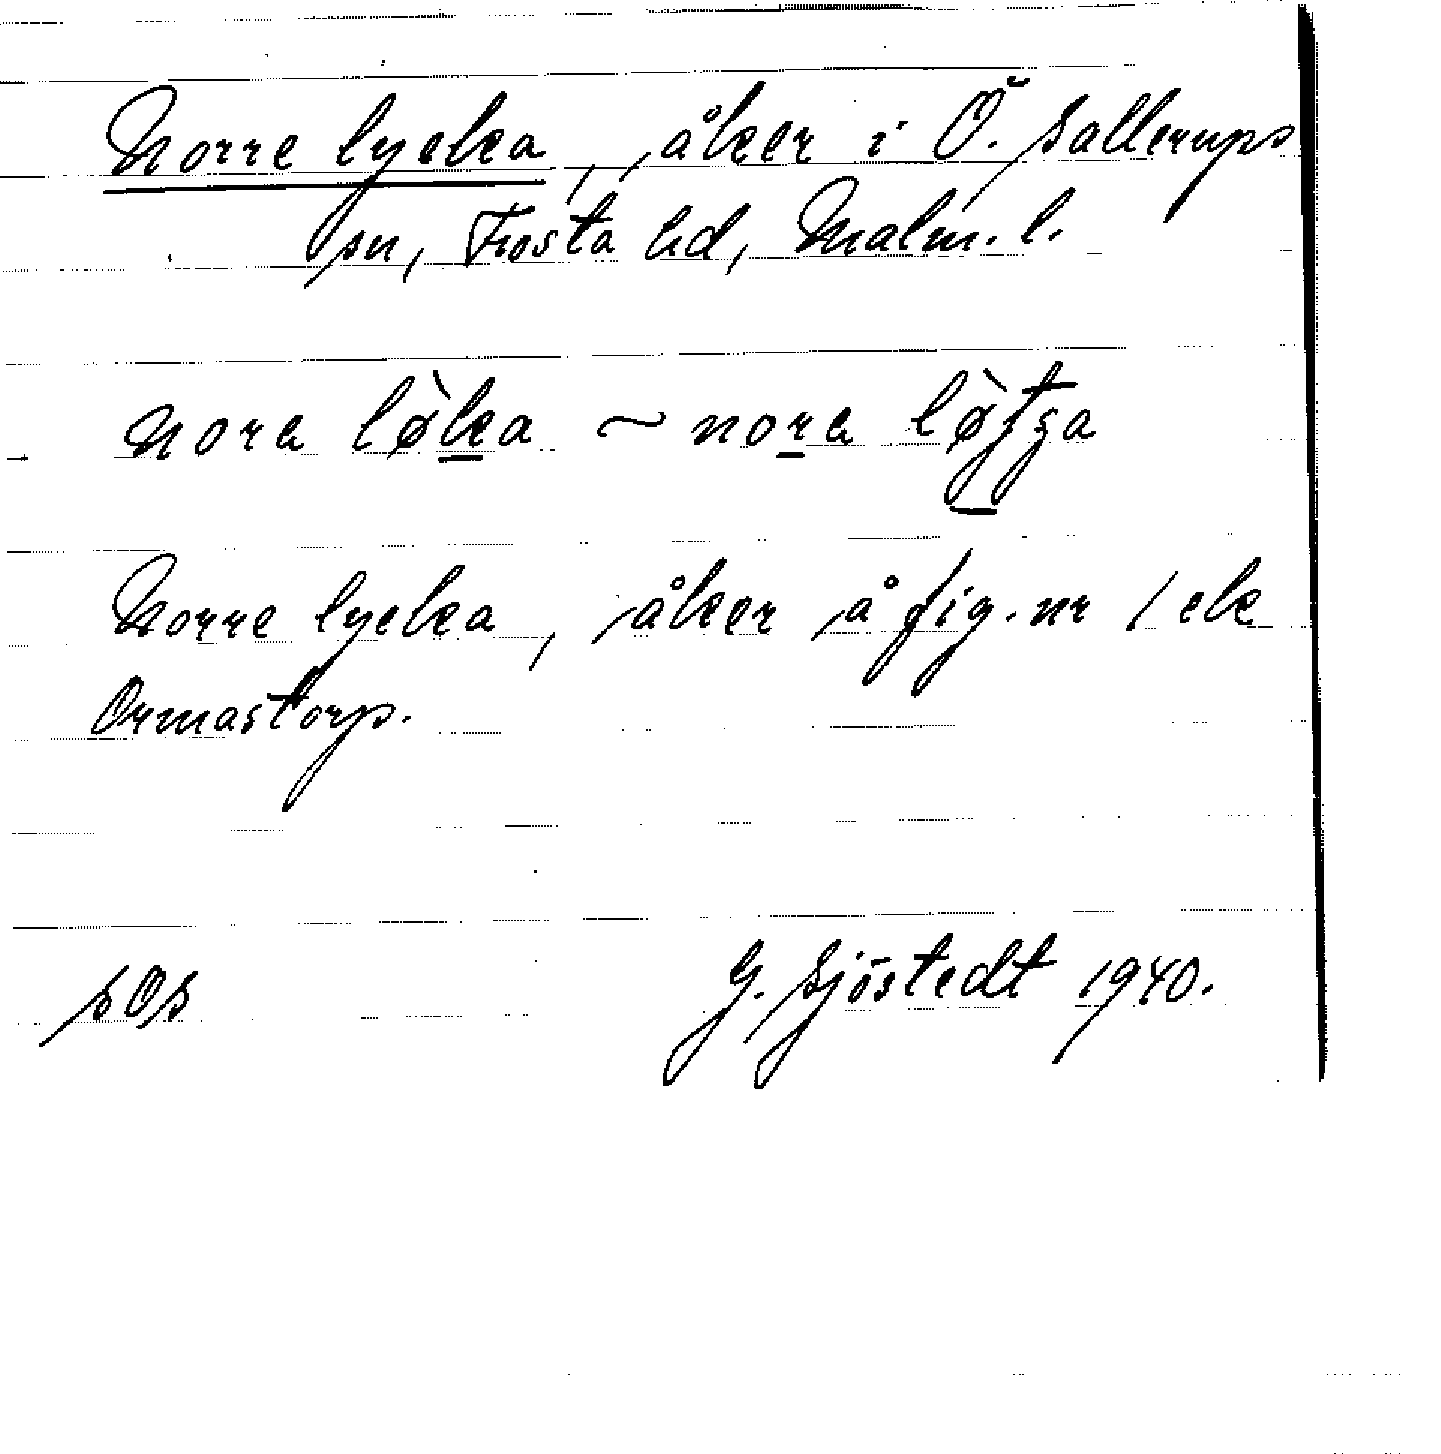 Norre lycka, åker i Ö. Sallerups
sn, Frosta hd, Malm. l.
nora lø̀ka ~ nora
Norre lycka, åker å fig. nr 1 ek
Ormastorp.
SOS G. Sjöstedt 1940.